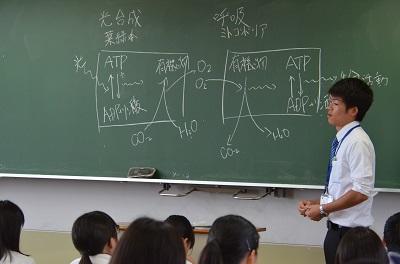 光合成
葉緑体
光
ATP
ADP+リン酸
有機物
O₂
CO₂
H₂O
呼吸
ミトコンドリア
O₂
有機物
ATP
ADP+リン酸
生命活動
CO₂
H₂O